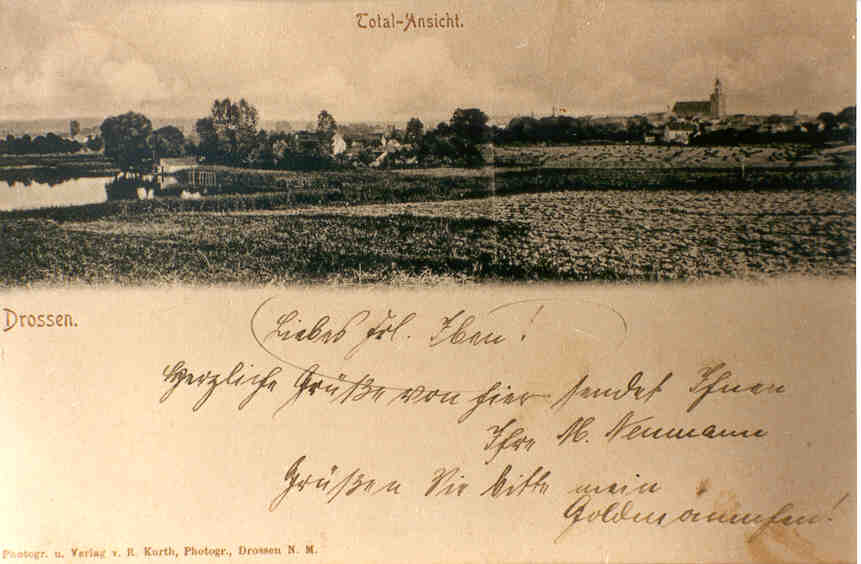 Total-Ansicht.
Drossen.
Liebes Frl. Iben!
Herzliche Grüße von hier sendet Ihnen
Ihre M. Neumann
Grüßen Sie bitte mein
Goldmännchen!
Photogr. u. Verlag v. R. Korth, Photogr., Drossen N. M.